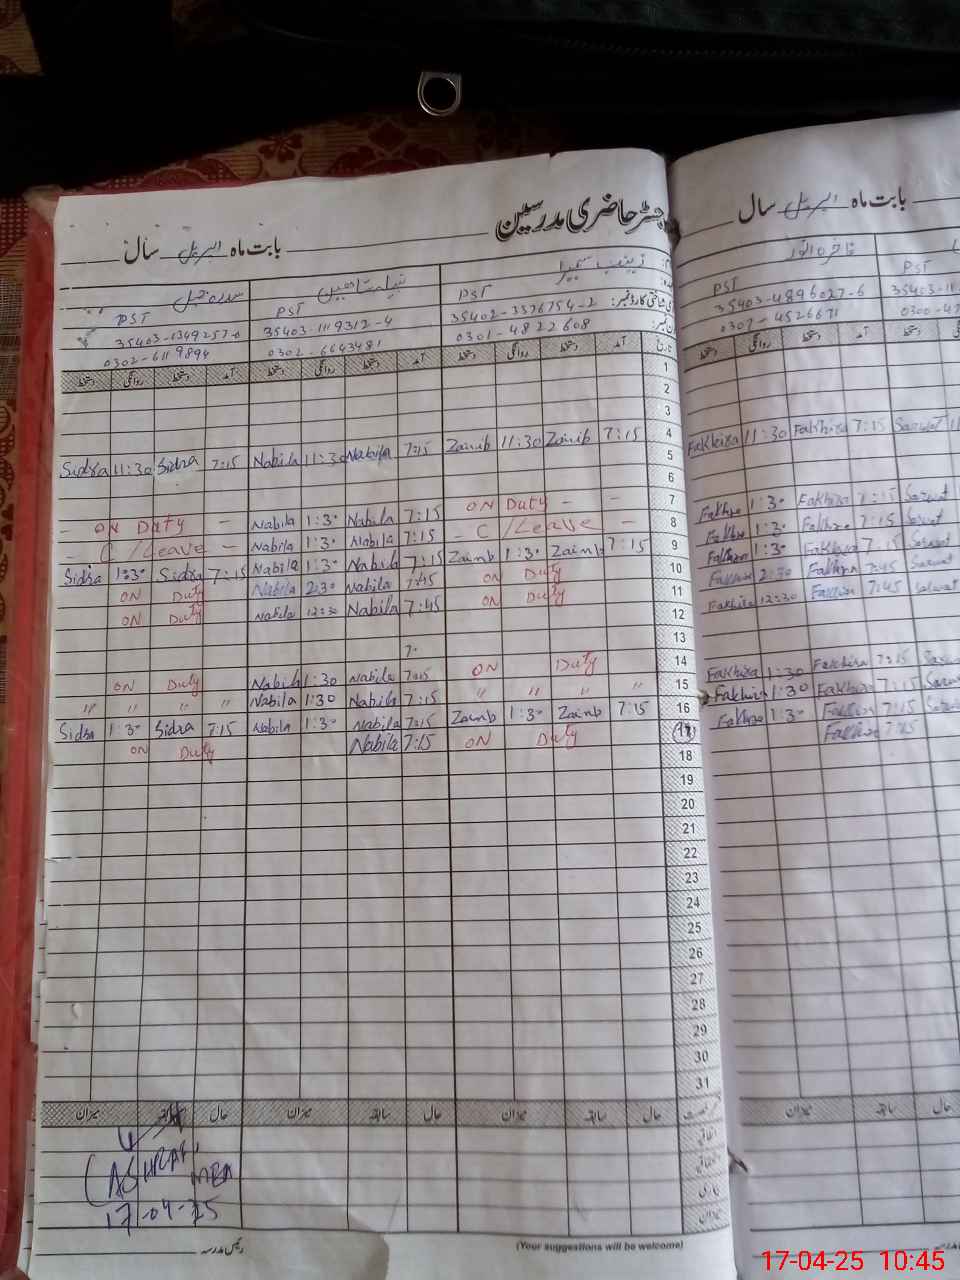 رجسٹر حاضری مدرسین
بابت ماہ اپریل سال
بابت ماہ اپریل سال
PST PST PST
35403-1349257-0 35403-1119312-4 35402-3326754-2
0302-6119894 0302-6643481 0301-4822608
PST PST
35403-4896027-6 35403-11
0307-4526671 0300-47
دستخط روانگی دستخط آمد دستخط روانگی دستخط آمد دستخط روانگی دستخط آمد تاریخ
1
2
3
Sidra 11:30 Sidra 7:15 Nabila 11:30 Nabila 7:15 Zainib 11:30 Zainib 7:15 4 Fakhira 11:30 Fakhira 7:15 Sarwat 11
5
6
ON Duty – Nabila 1:30 Nabila 7:15 ON Duty – – 7 Fakhra 1:30 Fakhira 7:15 Sarwat
– C/Leave – Nabila 1:30 Nabila 7:15 – C/Leave – 8 Fakhra 1:30 Fakhra 7:15 Sarwat
Sidra 1:30 Sidra 7:15 Nabila 1:30 Nabila 7:15 Zainb 1:30 Zainb 7:15 9 Fakhra 1:30 Fakhira 7:15 Sarwat
ON Duty Nabila 2:30 Nabila 7:45 ON Duty 10 Fakhra 2:30 Fakhra 7:45 Sarwat
ON Duty Nabila 12:30 Nabila 7:45 ON Duty 11 Fakhira 12:30 Fakhira 7:45 Sarwat
12
13
ON Duty Nabila 1:30 Nabila 7:15 ON Duty 14 Fakhira 1:30 Fakhira 7:15 Sarwat
" " " " Nabila 1:30 Nabila 7:15 " " " " 15 Fakhira 1:30 Fakhira 7:15 Sarwat
Sidra 1:30 Sidra 7:15 Nabila 1:30 Nabila 7:15 Zainb 1:30 Zainb 7:15 16 Fakhra 1:30 Fakhra 7:15 Sarwat
ON Duty Nabila 7:15 ON Duty 17 Fakhra 7:15
18
19
20
21
22
23
24
25
26
27
28
29
30
31
میزان سابقہ حال میزان سابقہ حال میزان سابقہ حال
میزان سابقہ حال
(ASHRAF,
MEA
17-04-25
رئیس مدرسہ
(Your suggestions will be welcome)
17-04-25 10:45